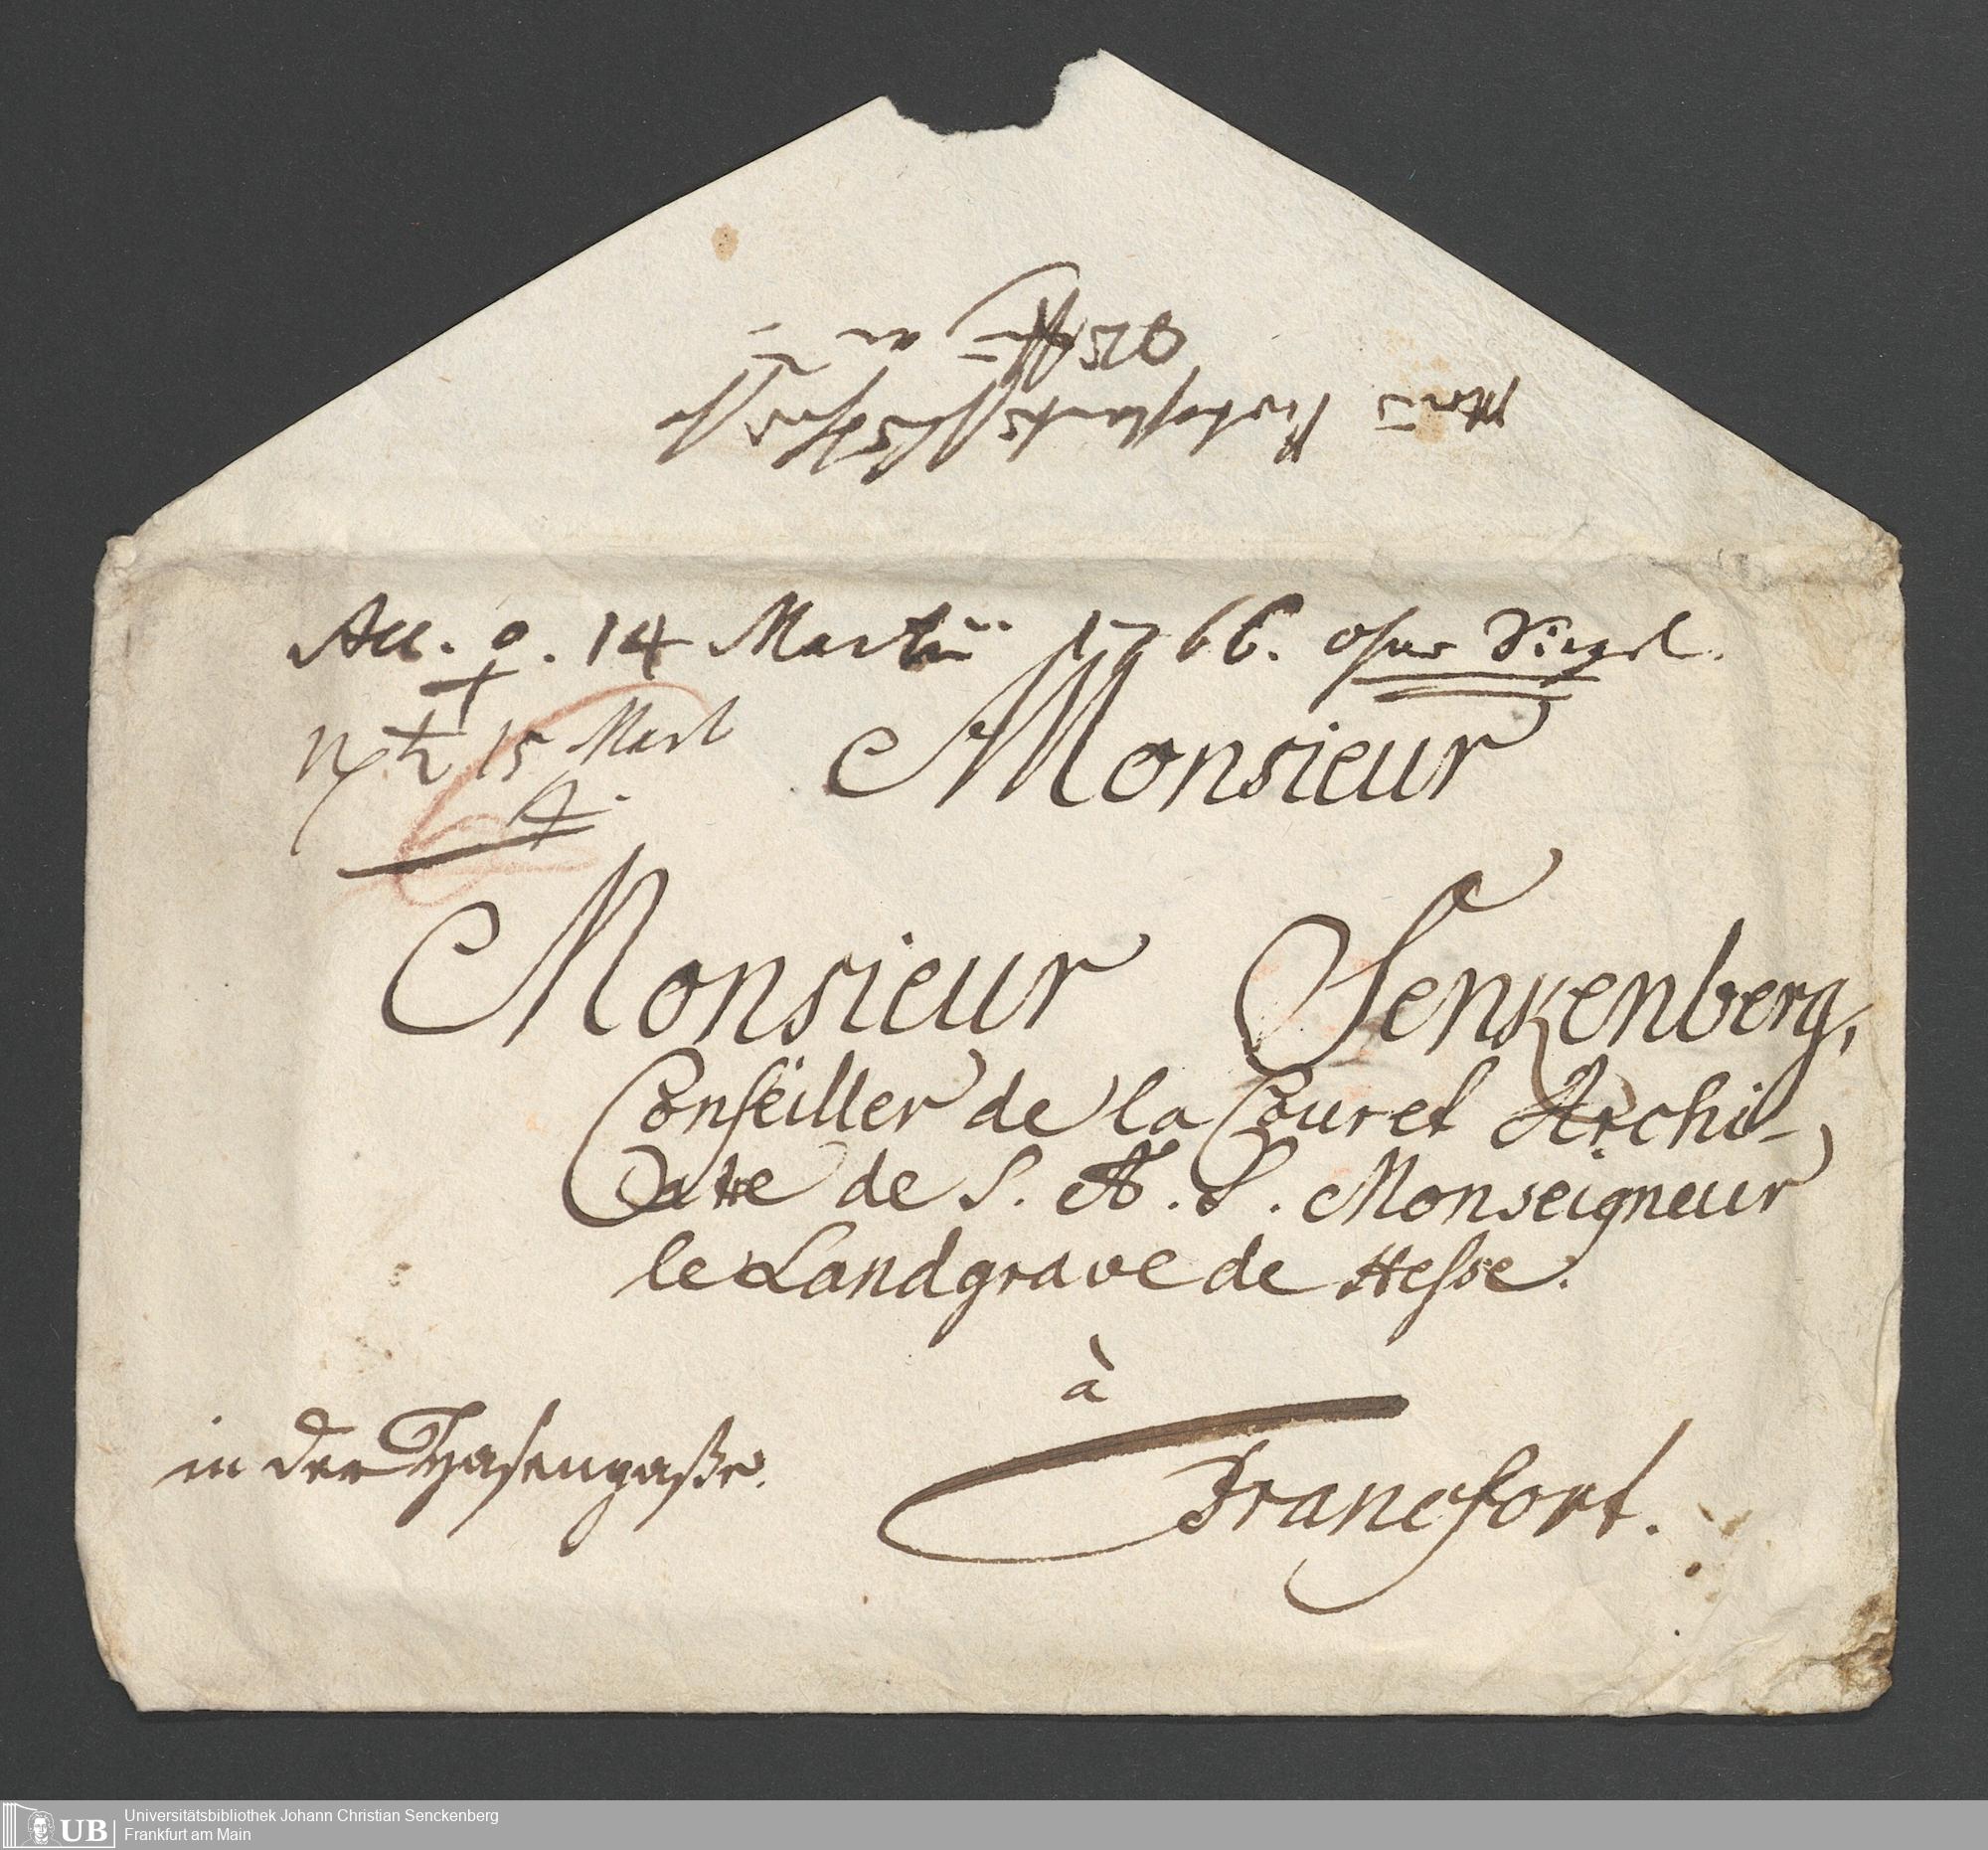 Acc. ♀. 14 Martii 1766. ohne Siegel.
♄ 15 Mart
Monsieur
Monsieur Senkenberg,
Conseiller de la Cour et Archi-
Datre de S. A. S. Monseigneur
le Landgrave de Hesse.
à
in der Hasengaße.
Francfort.
Universitätsbibliothek Johann Christian Senckenberg
Frankfurt am Main
UB